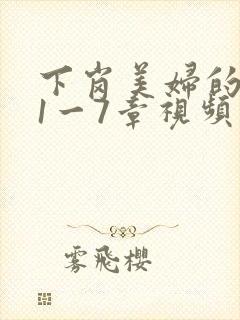 下岗美婦的
1一7章視頻
雾飛櫻